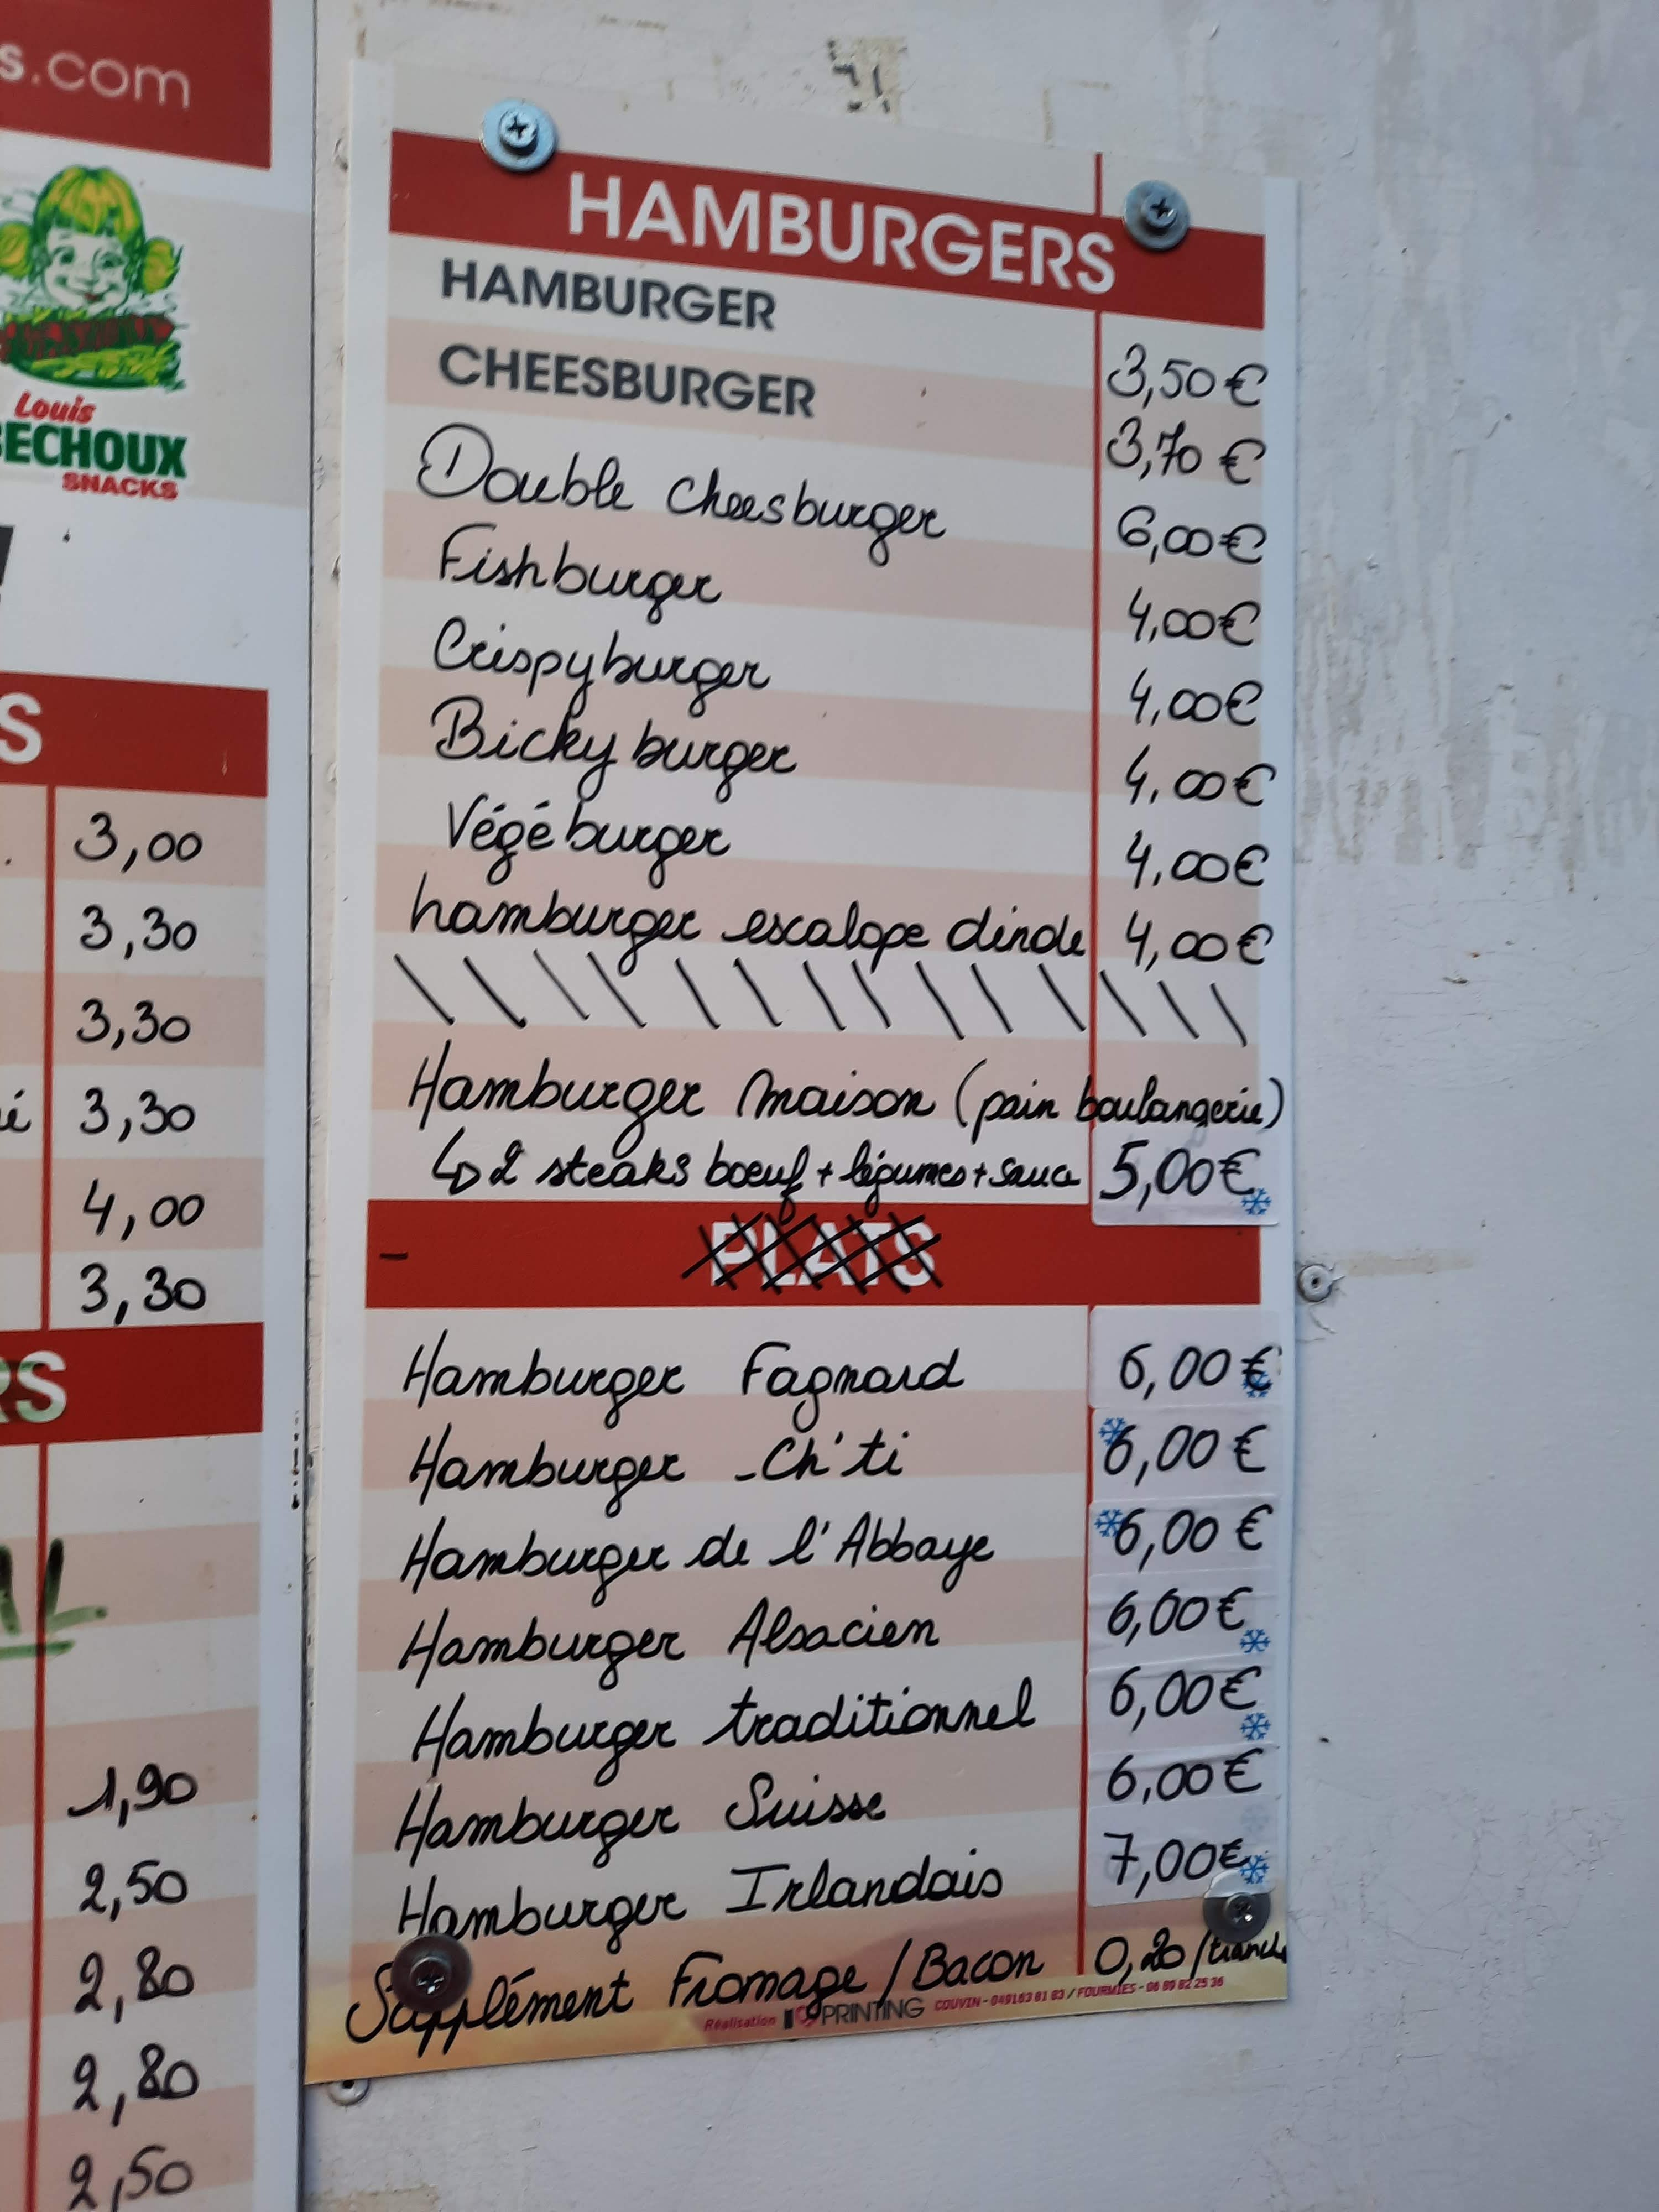 s.com
Louis
BECHOUX
SNACKS
S
3,00
3,30
3,30
é 3,30
4,00
3,30
RS
AL
1,90
2,50
2,80
2,80
2,50
HAMBURGERS
HAMBURGER 3,50€
CHEESBURGER 3,70€
Double cheesburger 6,00€
Fishburger 4,00€
Crispyburger 4,00€
Bicky burger 4,00€
Végéburger 4,00€
hamburger escalope dinde 4,00€
Hamburger maison (pain boulangerie)
↳ 2 steaks boeuf + légumes + sauce 5,00€
PLATS
Hamburger Fagnard 6,00€
Hamburger Ch'ti 6,00€
Hamburger de l'Abbaye 6,00€
Hamburger Alsacien 6,00€
Hamburger traditionnel 6,00€
Hamburger Suisse 6,00€
Hamburger Irlandais 7,00€
Supplément Fromage / Bacon 0,20/tranche
Réalisation PRINTING COUVIN - 049163 81 83 / FOURMIES - 06 89 82 25 36